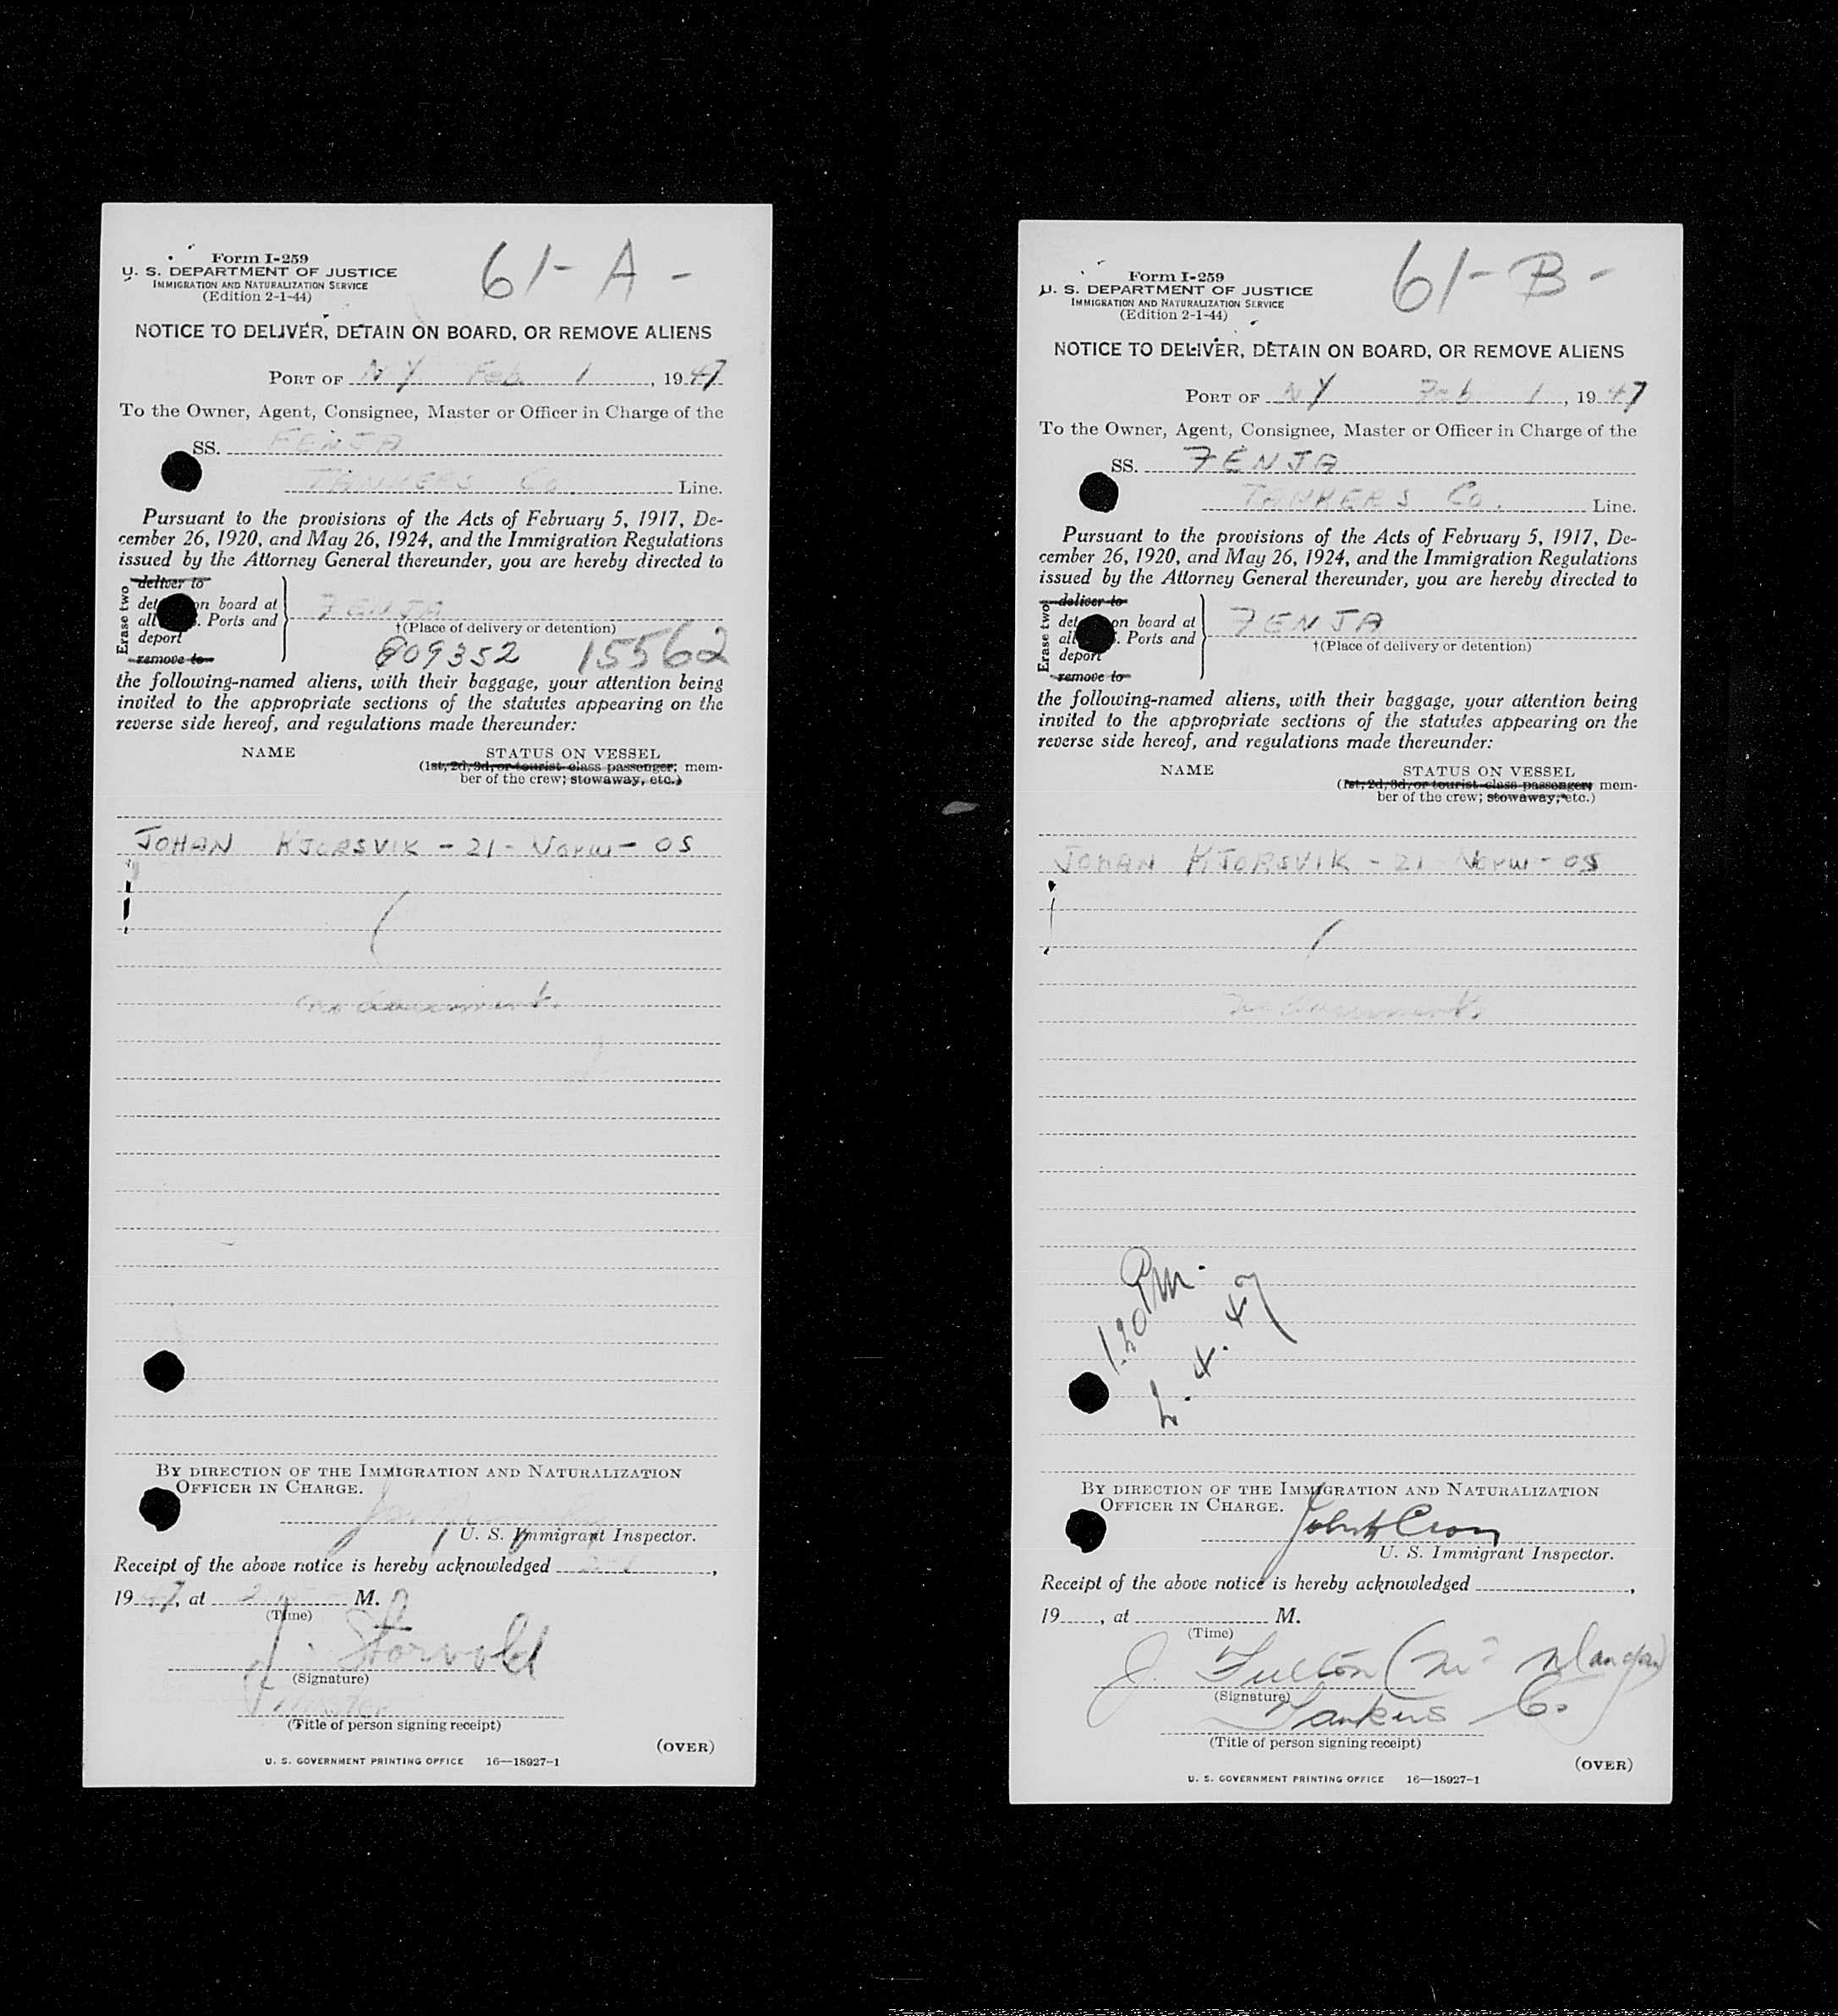 Form I-259
U. S. DEPARTMENT OF JUSTICE
IMMIGRATION AND NATURALIZATION SERVICE
(Edition 2-1-44)
61-A-
NOTICE TO DELIVER, DETAIN ON BOARD, OR REMOVE ALIENS
PORT OF NY Feb 1, 1947
To the Owner, Agent, Consignee, Master or Officer in Charge of the
SS. FENJA
TANKERS Co. Line.
Pursuant to the provisions of the Acts of February 5, 1917, De-
cember 26, 1920, and May 26, 1924, and the Immigration Regulations
issued by the Attorney General thereunder, you are hereby directed to
Erase two
deliver to
det on board at
all . Ports and
deport
remove to
FENJA
†(Place of delivery or detention)
809352 15562
the following-named aliens, with their baggage, your attention being
invited to the appropriate sections of the statutes appearing on the
reverse side hereof, and regulations made thereunder:
NAME
STATUS ON VESSEL
(1st, 2d, 3d, or tourist class passenger; mem-
ber of the crew; stowaway, etc.)
JOHAN KJORSVIK - 21 - Norw - OS
no document.
BY DIRECTION OF THE IMMIGRATION AND NATURALIZATION
OFFICER IN CHARGE.
U. S. Immigrant Inspector.
Receipt of the above notice is hereby acknowledged 2-1,
1947, at 2 M.
(Time)
J. Storvold
(Signature)
Master
(Title of person signing receipt)
(OVER)
U. S. GOVERNMENT PRINTING OFFICE 16—18927-1
Form I-259
U. S. DEPARTMENT OF JUSTICE
IMMIGRATION AND NATURALIZATION SERVICE
(Edition 2-1-44)
61-B-
NOTICE TO DELIVER, DETAIN ON BOARD, OR REMOVE ALIENS
PORT OF NY Feb 1, 1947
To the Owner, Agent, Consignee, Master or Officer in Charge of the
SS. FENJA
TANKERS Co. Line.
Pursuant to the provisions of the Acts of February 5, 1917, De-
cember 26, 1920, and May 26, 1924, and the Immigration Regulations
issued by the Attorney General thereunder, you are hereby directed to
Erase two
deliver to
det on board at
all . Ports and
deport
remove to
FENJA
†(Place of delivery or detention)
the following-named aliens, with their baggage, your attention being
invited to the appropriate sections of the statutes appearing on the
reverse side hereof, and regulations made thereunder:
NAME
STATUS ON VESSEL
(1st, 2d, 3d, or tourist class passenger; mem-
ber of the crew; stowaway, etc.)
JOHAN KJORSVIK - 21 Norw - OS
no documents
1.20 PM.
2. 4. 47
BY DIRECTION OF THE IMMIGRATION AND NATURALIZATION
OFFICER IN CHARGE.
U. S. Immigrant Inspector.
Receipt of the above notice is hereby acknowledged ,
19 , at M.
(Time)
J. Fulton
(Signature)
Tankers Co.
(Title of person signing receipt)
(OVER)
U. S. GOVERNMENT PRINTING OFFICE 16—18927-1